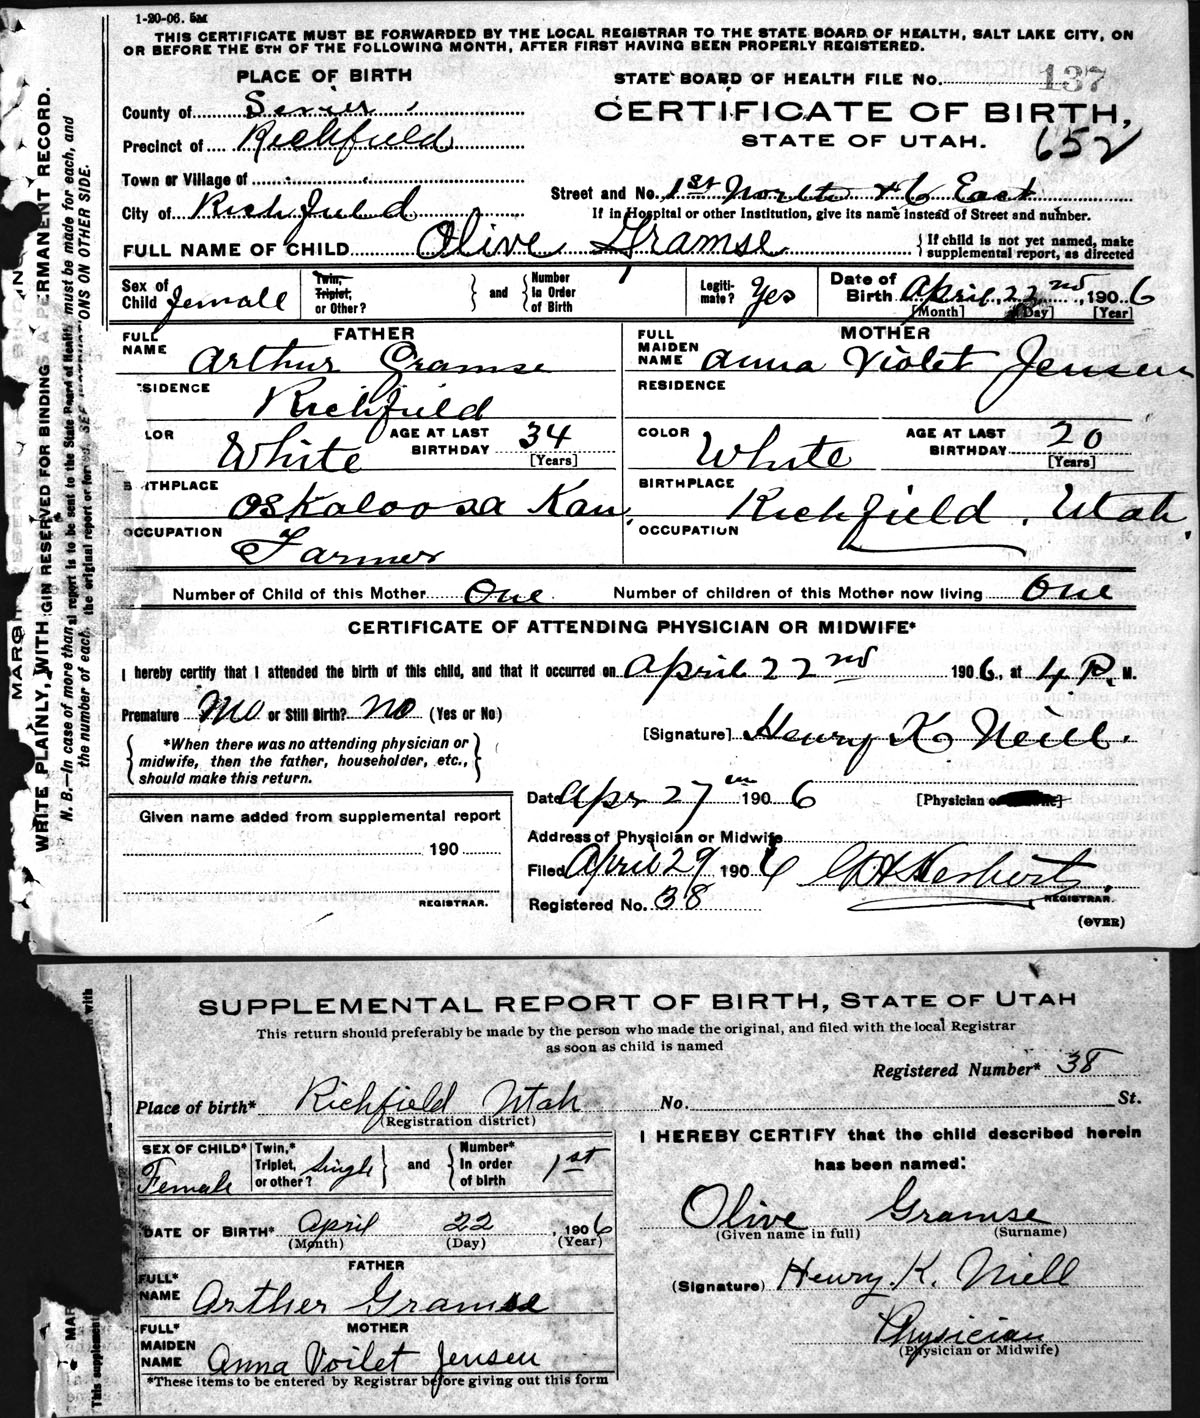 1-20-06. 5M
THIS CERTIFICATE MUST BE FORWARDED BY THE LOCAL REGISTRAR TO THE STATE BOARD OF HEALTH, SALT LAKE CITY, ON
OR BEFORE THE 5TH OF THE FOLLOWING MONTH, AFTER FIRST HAVING BEEN PROPERLY REGISTERED.
PLACE OF BIRTH
STATE BOARD OF HEALTH FILE No. 137
County of Sevier
CERTIFICATE OF BIRTH,
Precinct of Richfield
STATE OF UTAH. 652
Town or Village of
Street and No. 1st North & 6 East
City of Richfield
If in Hospital or other Institution, give its name instead of Street and number.
FULL NAME OF CHILD Olive Gramse
If child is not yet named, make
supplemental report, as directed
Sex of Child female
Twin, Triplet, or Other?
and
Number in Order of Birth
Legitimate? Yes
Date of Birth April 22nd, 1906
[Month] [Day] [Year]
FATHER
MOTHER
FULL NAME Arthur Gramse
FULL MAIDEN NAME Anna Violet Jensen
SIDENCE Richfield
RESIDENCE
LOR White
AGE AT LAST BIRTHDAY 34 [Years]
COLOR White
AGE AT LAST BIRTHDAY 20 [Years]
BIRTHPLACE Oskaloosa Kan.
BIRTHPLACE Richfield, Utah.
OCCUPATION Farmer
OCCUPATION
Number of Child of this Mother One
Number of children of this Mother now living One
CERTIFICATE OF ATTENDING PHYSICIAN OR MIDWIFE*
I hereby certify that I attended the birth of this child, and that it occurred on April 22nd 1906, at 4 P. M.
Premature No or Still Birth? no (Yes or No)
*When there was no attending physician or
midwife, then the father, householder, etc.,
should make this return.
[Signature] Henry K Neill.
Date Apr 27 1906
[Physician or
Given name added from supplemental report
190
REGISTRAR.
Address of Physician or Midwife
Filed April 29 1906
REGISTRAR.
Registered No. 38
(OVER)
WRITE PLAINLY, WITH
GIN RESERVED FOR BINDING
A PERMANENT RECORD.
N. B.—In case of more than
al report is to be sent to the State Board of Health, must be made for each, and
the number of each,
the original report or
ONS ON OTHER SIDE.
SUPPLEMENTAL REPORT OF BIRTH, STATE OF UTAH
This return should preferably be made by the person who made the original, and filed with the local Registrar
as soon as child is named
Registered Number* 38
Place of birth* Richfield Utah
(Registration district)
No. St.
SEX OF CHILD* Female
Twin,* Triplet, or other? Single
and
Number* In order of birth 1st
I HEREBY CERTIFY that the child described herein
has been named:
Olive Gramse
(Given name in full) (Surname)
DATE OF BIRTH* April 22, 1906
(Month) (Day) (Year)
FATHER
FULL* NAME Arther Gramse
(Signature) Henry. K. Niell
Physician
(Physician or Midwife)
MOTHER
FULL* MAIDEN NAME Anna Voilet Jensen
*These items to be entered by Registrar before giving out this form
This supplement
with